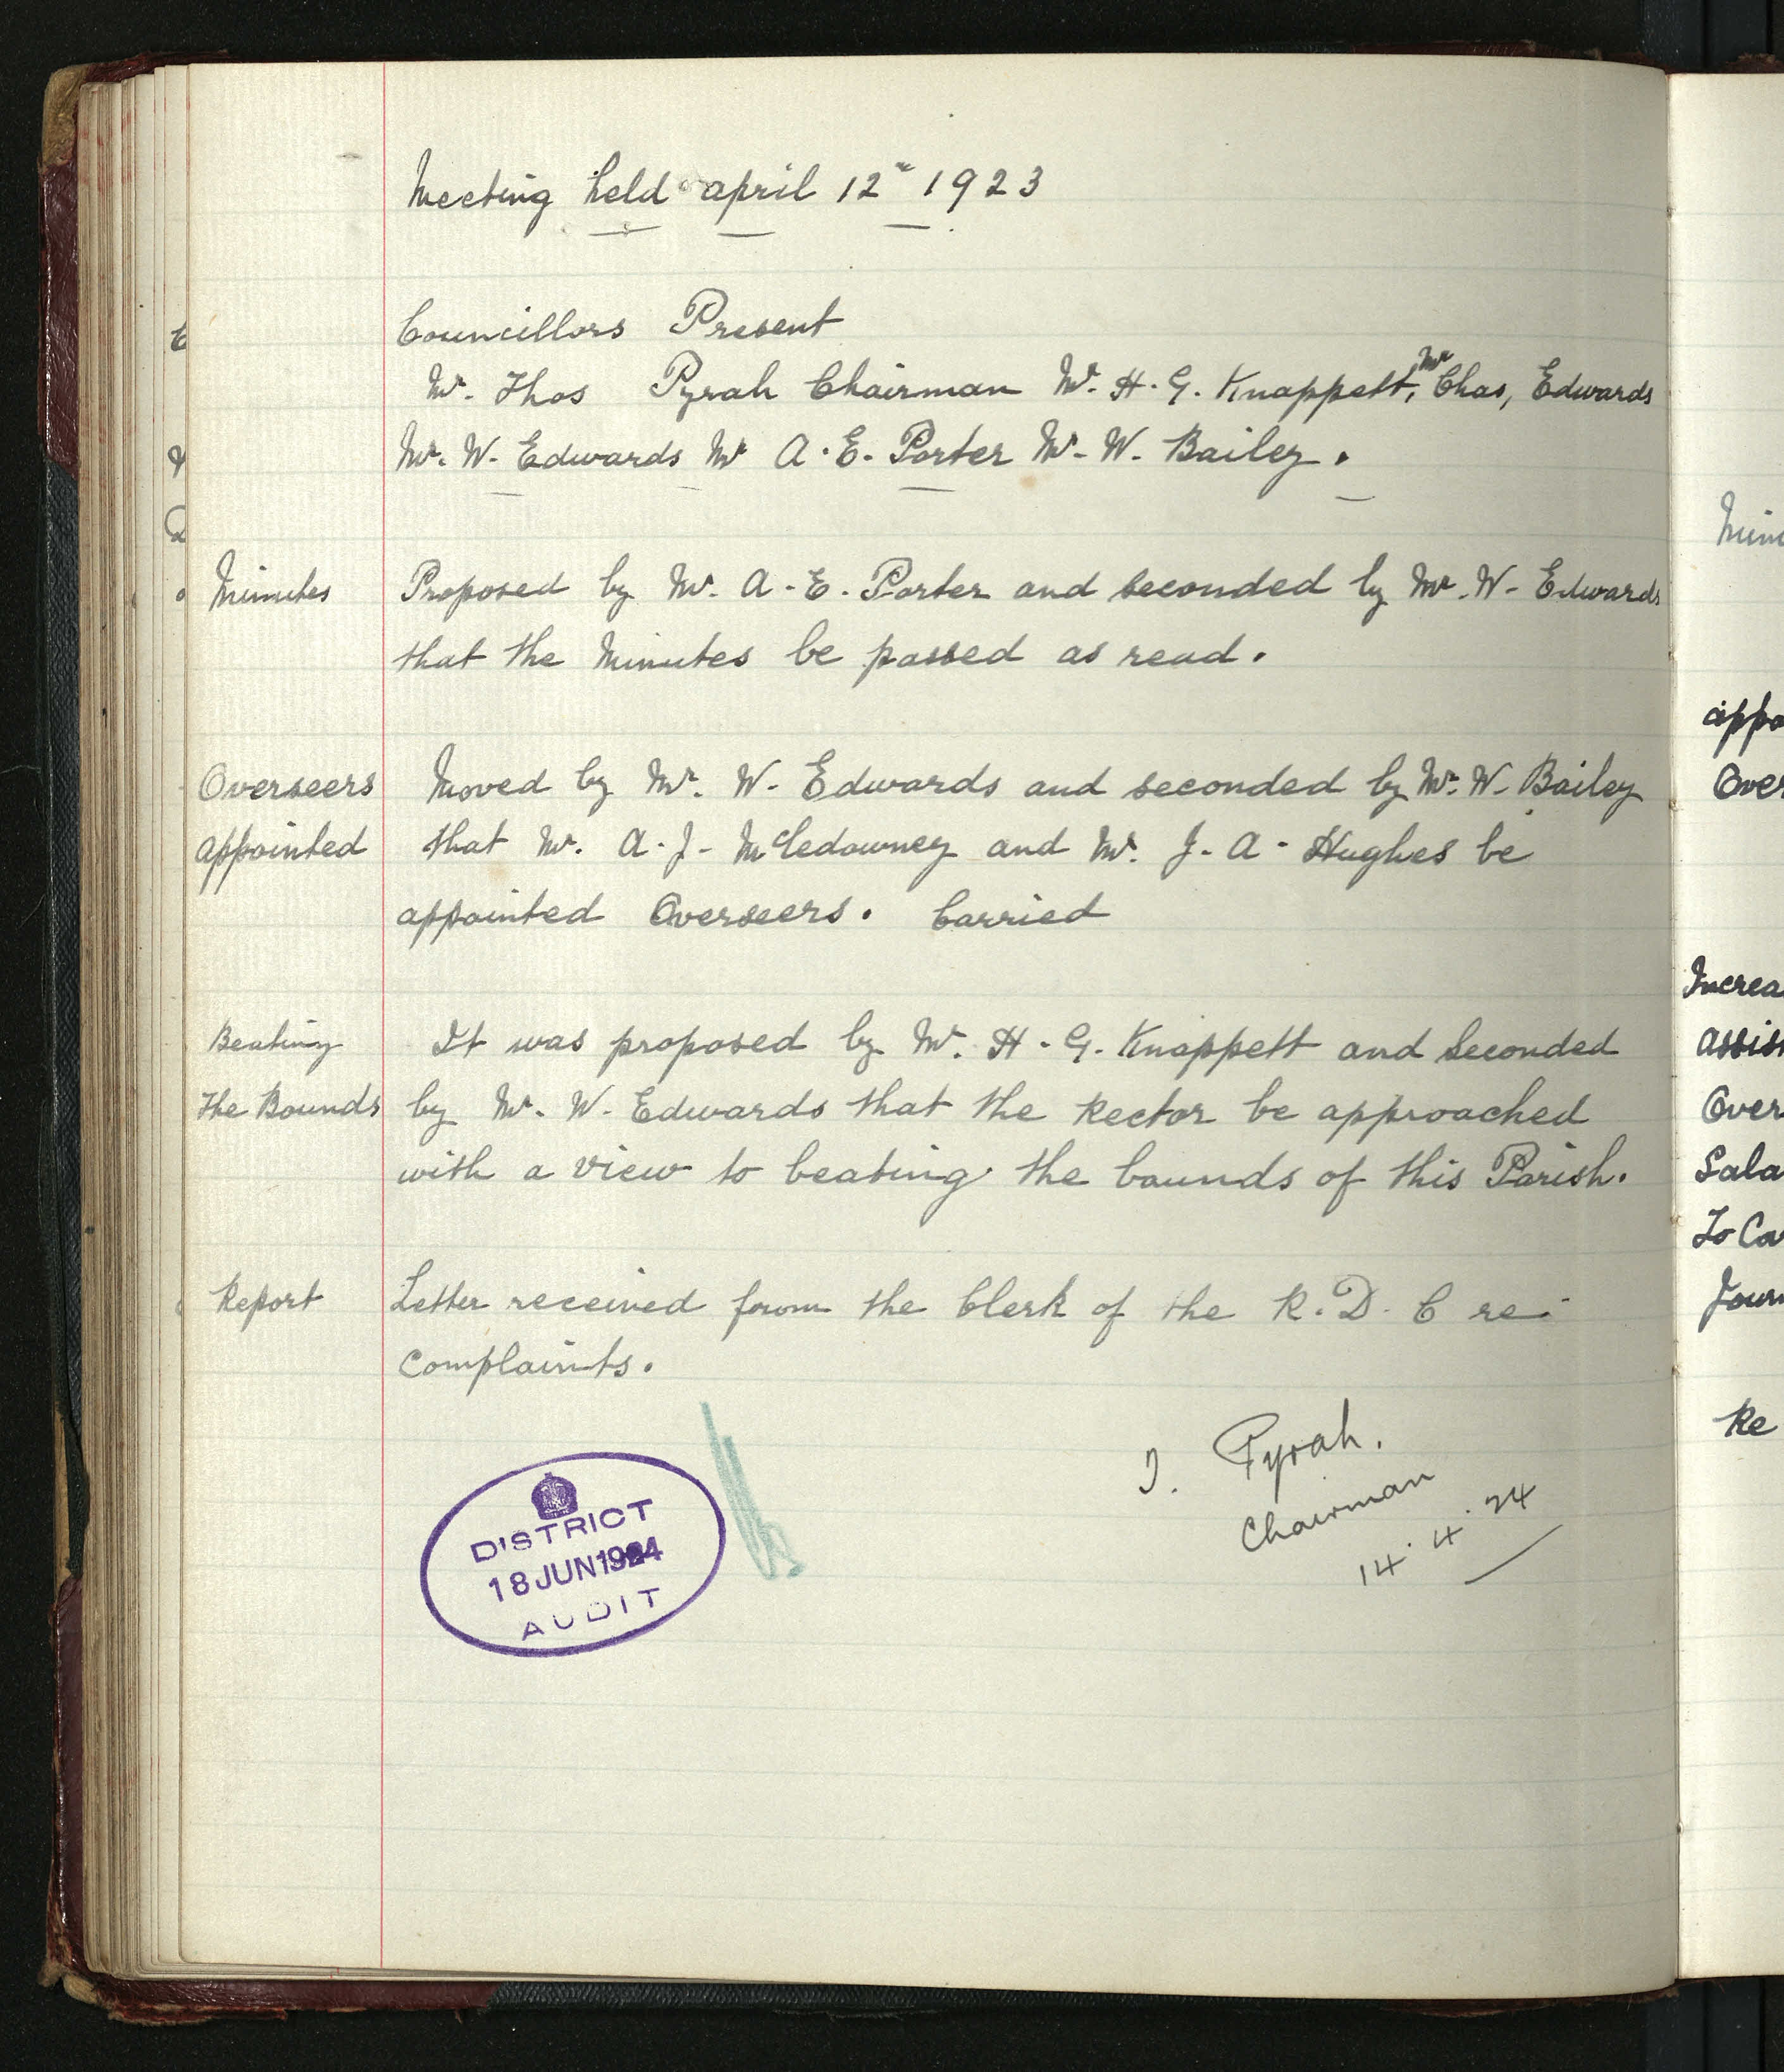 Meeting held april 12th 1923
Councillors Present
Mr. Thos Pyrah Chairman Mr. H. G. Knappett, Mr Chas, Edwards
Mr. W. Edwards Mr A. E. Porter Mr. W. Bailey.
Minutes Proposed by Mr. A. E. Porter and seconded by Mr. W. Edwards
that the Minutes be passed as read.
Overseers Moved by Mr. W. Edwards and seconded by Mr. W. Bailey
appointed that Mr. A. J. McCledowney and Mr. J. A. Hughes be
appointed Overseers. Carried
Beating It was proposed by Mr. H. G. Knappett and Seconded
the Bounds by Mr. W. Edwards that the Rector be approached
with a view to beating the bounds of this Parish.
Report Letter received from the Clerk of the R. D. C re:
complaints.
T. Pyrah.
Chairman
14.4.24
DISTRICT
18 JUN 1924
AUDIT
Minu
appo
Over
Increa
assis
Over
Sala
To Co
Journ
Re